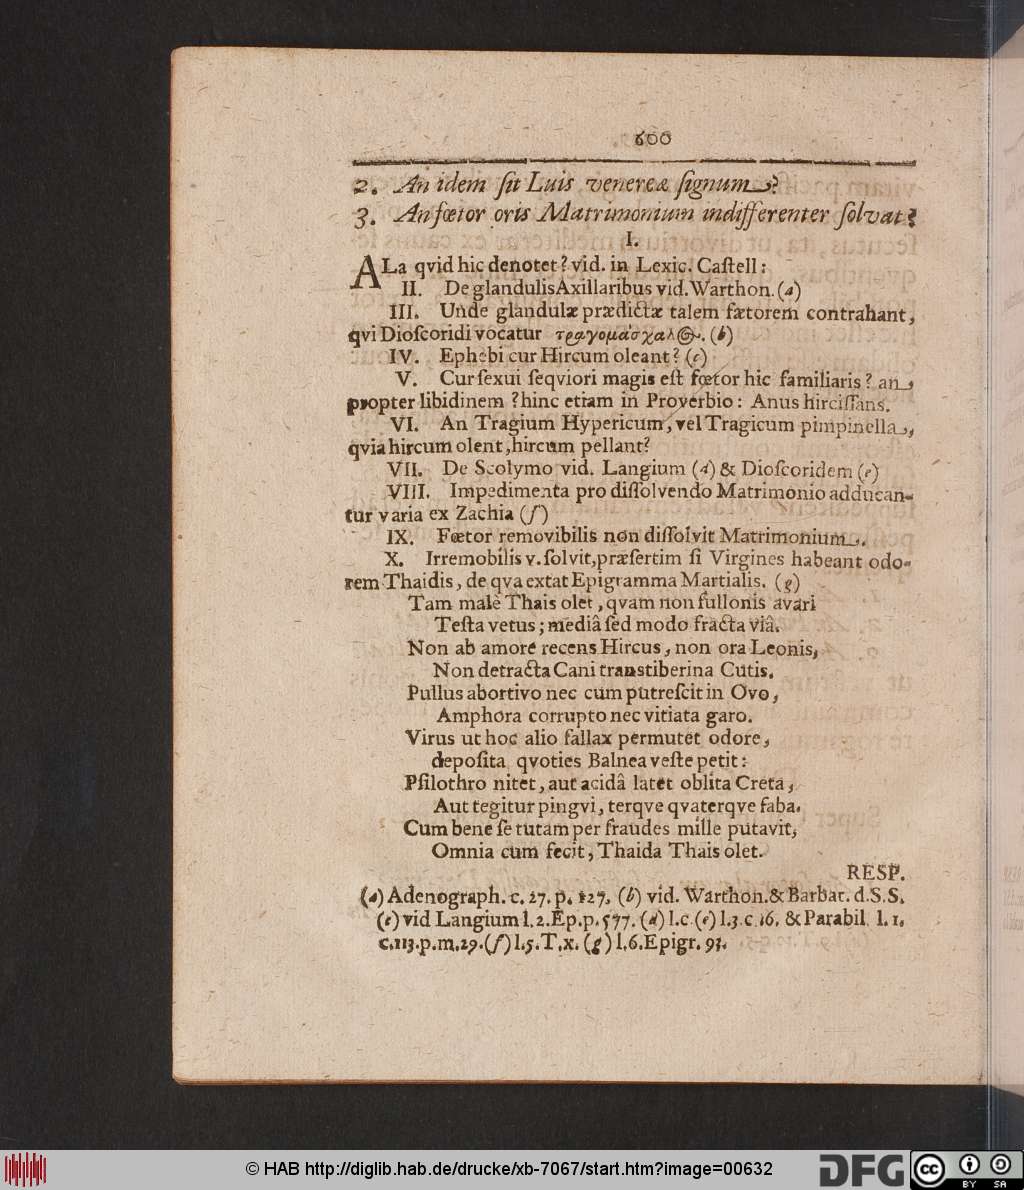 600
2. An idem ſit Luis venereæ ſignum?
3. An fœtor oris Matrimonium indifferenter ſolvat?
I.
ALa qvid hic denotet? vid. in Lexic. Caſtell:
II. De glandulis Axillaribus vid. Warthon. (a)
III. Unde glandulæ prædictæ talem fætorem contrahant,
qvi Dioſcoridi vocatur τραγομάσχαλ. (b)
IV. Ephebi cur Hircum oleant? (c)
V. Cur ſexui ſeqviori magis eſt fœtor hic familiaris? an,
propter libidinem? hinc etiam in Proverbio: Anus hirciſſans.
VI. An Tragium Hypericum, vel Tragicum pimpinella,
qvia hircum olent, hircum pellant?
VII. De Scolymo vid. Langium (d) & Dioſcoridem (e)
VIII. Impedimenta pro diſſolvendo Matrimonio adducan-
tur varia ex Zachia (f)
IX. Fœtor removibilis non diſſolvit Matrimonium.
X. Irremobilis v. ſolvit, præſertim ſi Virgines habeant odo-
rem Thaidis, de qva extat Epigramma Martialis. (g)
Tam malè Thais olet, qvam non fullonis avari
Teſta vetus; mediâ ſed modo fracta viâ.
Non ab amore recens Hircus, non ora Leonis,
Non detracta Cani transtiberina Cutis.
Pullus abortivo nec cum putreſcit in Ovo,
Amphora corrupto nec vitiata garo.
Virus ut hoc alio fallax permutet odore,
depoſita qvoties Balnea veſte petit:
Pſilothro nitet, aut acidâ latet oblita Creta,
Aut tegitur pingvi, terqve qvaterqve faba.
Cum bene ſe tutam per fraudes mille putavit,
Omnia cum fecit, Thaida Thais olet.
RESP.
(a) Adenograph. c. 27. p. 127. (b) vid. Warthon. & Barbar. d. S.S.
(c) vid Langium l. 2. Ep. p. 577. (d) l.c. (e) l. 3. c. 16. & Parabil. l. 1.
c. 113. p. m. 29. (f) l. 5. T. x. (g) l. 6. Epigr. 93.
© HAB http://diglib.hab.de/drucke/xb-7067/start.htm?image=00632
DFG
cc BY SA